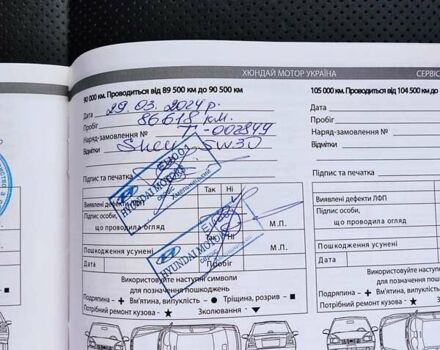 ХЮНДАЙ МОТОР УКРАЇНА
СЕРВІС
90 000 км. Проводиться від 89 500 км до 90 500 км
Дата 29.03.2024 р.
Пробіг 86618 км.
Наряд-замовлення № Т-002849
Відмітки Shell 5w30
Підпис та печатка
HYUNDAI MOTOR
Хмельницький
Виявлені дефекти Так Ні
Підпис особи,
що проводила огляд М.П.
HYUNDAI MOTOR
Пошкодження усунені
Дата Пробіг М.П.
Використовуйте наступні символи
для позначення пошкоджень
Подряпина - + Вм'ятина, випуклість - ● Тріщина, розрив - ★
Потрібний ремонт кузова - ★ Сколювання - ▼
105 000 км. Проводиться від 104 500 км до
Дата
Пробіг
Наряд-замовлення №
Відмітки
Підпис та печатка
Виявлені дефекти ЛФП
Підпис особи,
що проводила огляд
Пошкодження усунені
Дата
Використовуйте
для позна
Подряпина - + Вм'ятина, випуклі
Потрібний ремонт кузова - ★